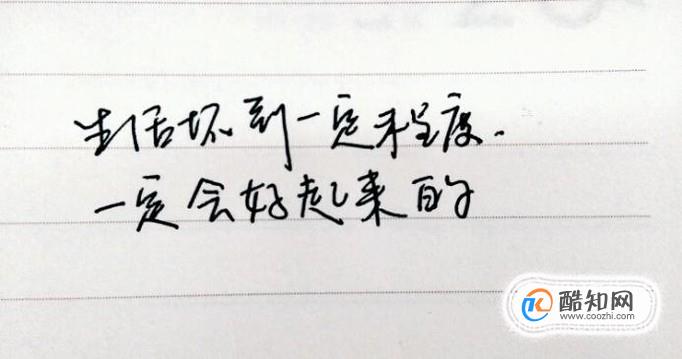 生活坏到一定程度.
一定会好起来的
酷知网
www.coozhi.com